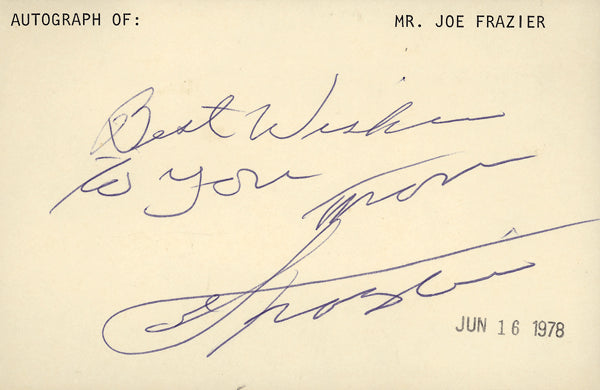 AUTOGRAPH OF: MR. JOE FRAZIER
Best Wishes
to you from
Joe Frazier
JUN 16 1978